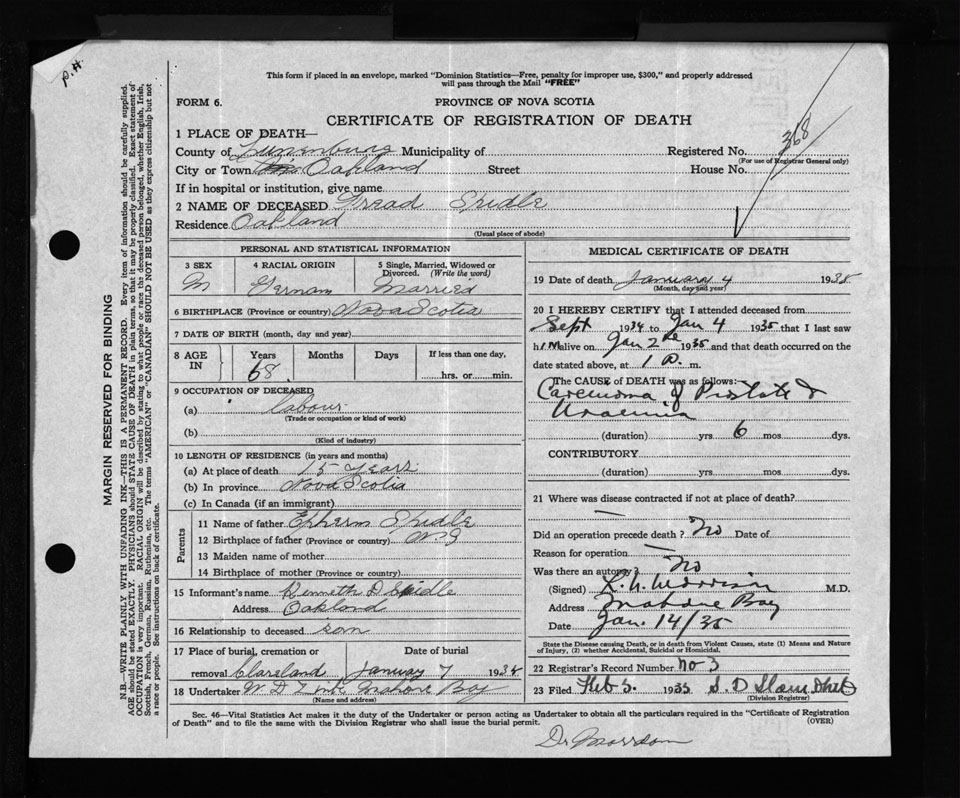 P.H.
This form if placed in an envelope, marked "Dominion Statistics—Free, penalty for improper use, $300," and properly addressed
will pass through the Mail "FREE"
FORM 6.
PROVINCE OF NOVA SCOTIA
CERTIFICATE OF REGISTRATION OF DEATH
368
1 PLACE OF DEATH—
County of Lunenburg Municipality of Registered No.
(For use of Registrar General only)
City or Town Oakland Street House No.
If in hospital or institution, give name
2 NAME OF DECEASED Spidle
Residence Oakland
(Usual place of abode)
PERSONAL AND STATISTICAL INFORMATION
3 SEX 4 RACIAL ORIGIN 5 Single, Married, Widowed or
Divorced. (Write the word)
M German Married
6 BIRTHPLACE (Province or country) Nova Scotia
7 DATE OF BIRTH (month, day and year)
8 AGE IN Years Months Days If less than one day,
68 hrs. or min.
9 OCCUPATION OF DECEASED
(a) labour
(Trade or occupation or kind of work)
(b)
(Kind of industry)
10 LENGTH OF RESIDENCE (in years and months)
(a) At place of death 15 years
(b) In province Nova Scotia
(c) In Canada (if an immigrant)
Parents
11 Name of father Ephern Spidle
12 Birthplace of father (Province or country) N.S
13 Maiden name of mother
14 Birthplace of mother (Province or country)
15 Informant's name Kenneth D Spidle
Address Oakland
16 Relationship to deceased son
17 Place of burial, cremation or Date of burial
removal Clareland January 7 1935
18 Undertaker W D Zink Mahone Bay
(Name and address)
MEDICAL CERTIFICATE OF DEATH
19 Date of death January 4 1935
(Month, day and year)
20 I HEREBY CERTIFY that I attended deceased from
Sept 1934 to Jan 4 1935 that I last saw
him alive on Jan 2 1935 and that death occurred on the
date stated above, at 1 P. m.
The CAUSE of DEATH was as follows:
Carcinoma of Prostate &
Uraemia
(duration) yrs 6 mos. dys.
CONTRIBUTORY
(duration) yrs. mos. dys.
21 Where was disease contracted if not at place of death?
—
Did an operation precede death? No Date of
Reason for operation —
Was there an autopsy? No
(Signed) Morrison M.D.
Address Mahone Bay
Date Jan. 14/35
State the Disease causing Death, or in death from Violent Causes, state (1) Means and Nature
of Injury, (2) whether Accidental, Suicidal or Homicidal.
22 Registrar's Record Number no 3
23 Filed Feb 5. 1935 S. D
(Division Registrar)
Sec. 46—Vital Statistics Act makes it the duty of the Undertaker or person acting as Undertaker to obtain all the particulars required in the "Certificate of Registration
of Death" and to file the same with the Division Registrar who shall issue the burial permit.
(OVER)
Dr Morrison
MARGIN RESERVED FOR BINDING
N.B.—WRITE PLAINLY WITH UNFADING INK—THIS IS A PERMANENT RECORD. Every item of information should be carefully supplied.
AGE should be stated EXACTLY. PHYSICIANS should STATE CAUSE OF DEATH in plain terms, so that it may be properly classified. Exact statement of
OCCUPATION is very important. RACIAL ORIGIN will be described by stating to what people or race the deceased person belonged, whether English, Irish,
Scottish, French, German, Russian, Ruthenian, etc. The terms "AMERICAN" or "CANADIAN" SHOULD NOT BE USED as they express citizenship but not
a race or people. See instructions on back of certificate.